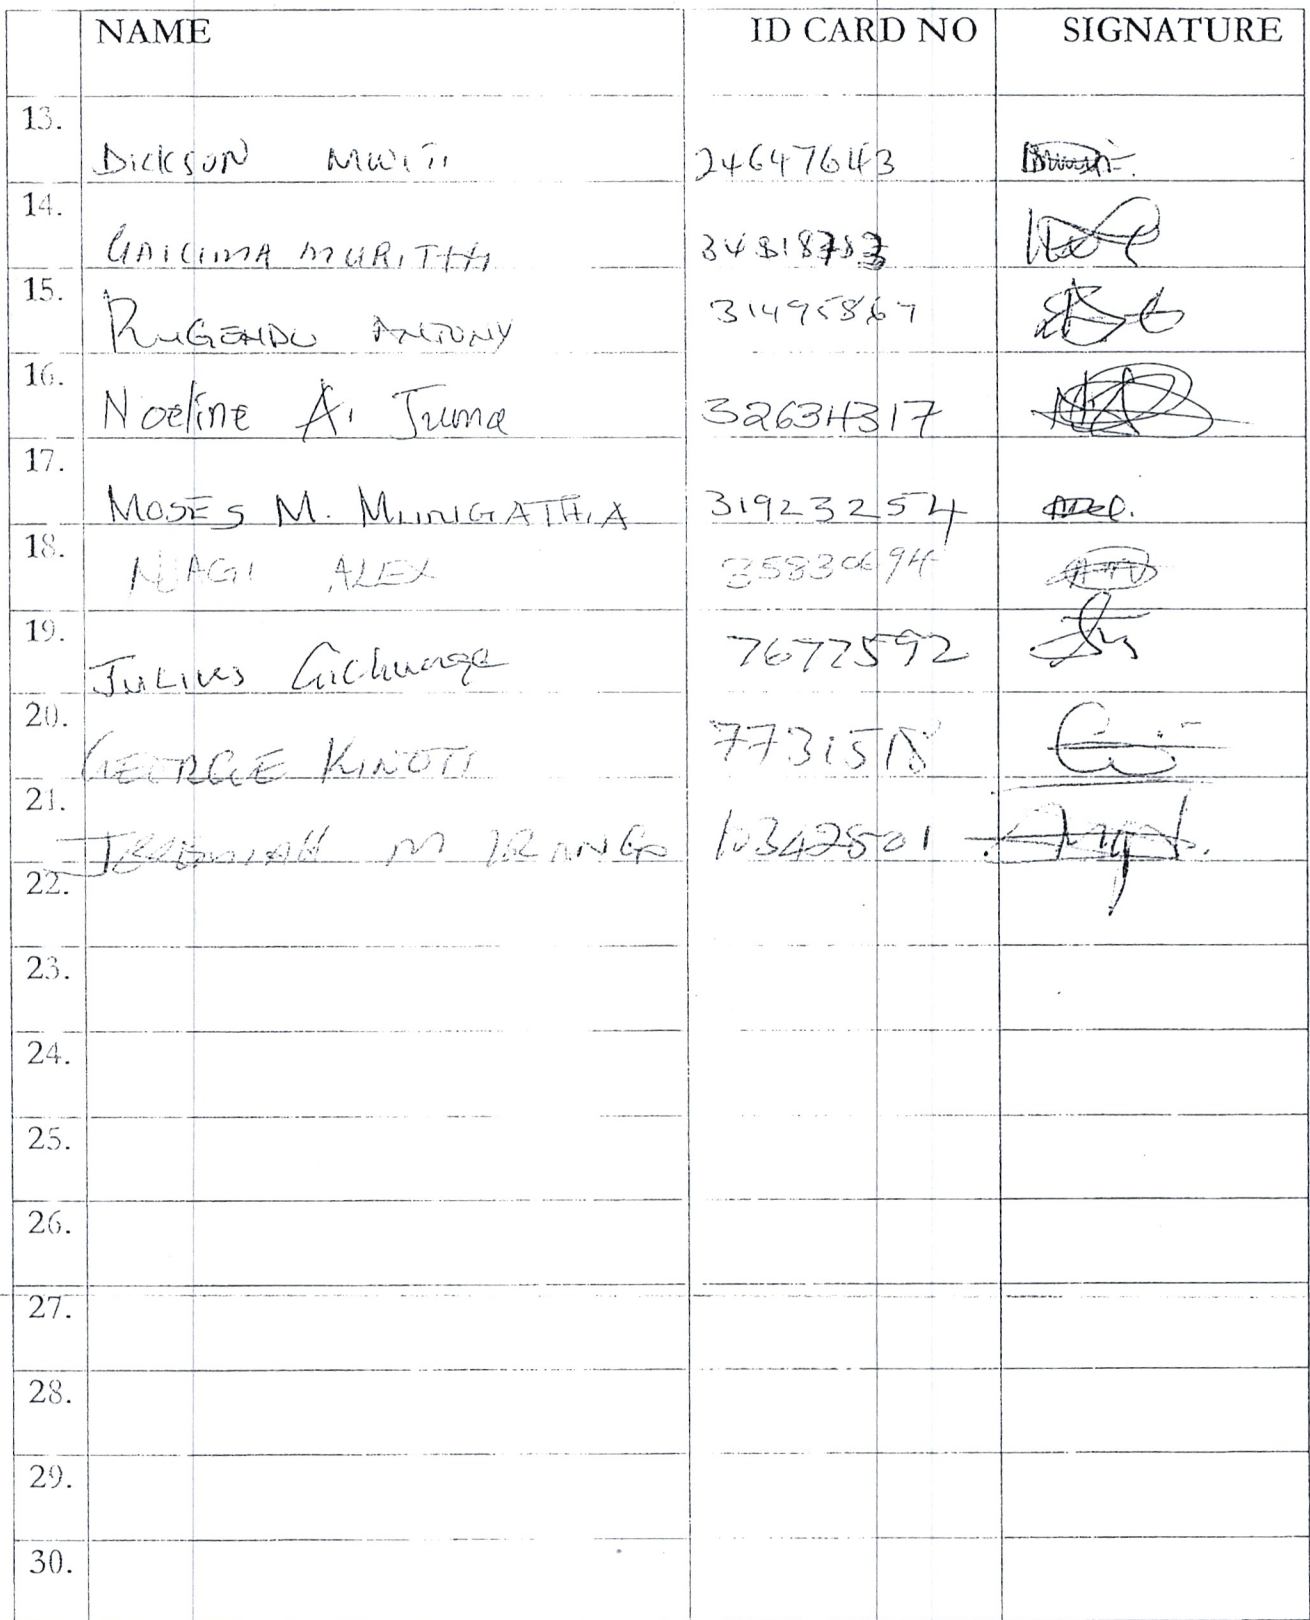 NAME ID CARD NO SIGNATURE
13. Dickson Mwiti 24647643
14. GAICIMA MURITHI 34818783
15. RUGENDO ANTONY 31495867
16. Noeline A. Juma 32634317
17. MOSES M. MUNGATHIA 31923254
18. NJAGI ALEX 35830694
19. JULIUS Gichunge 7677592
20. GEORGE KINOTI 7731518
21. JEREMIAH M IRANGO 10342501
22.
23.
24.
25.
26.
27.
28.
29.
30.